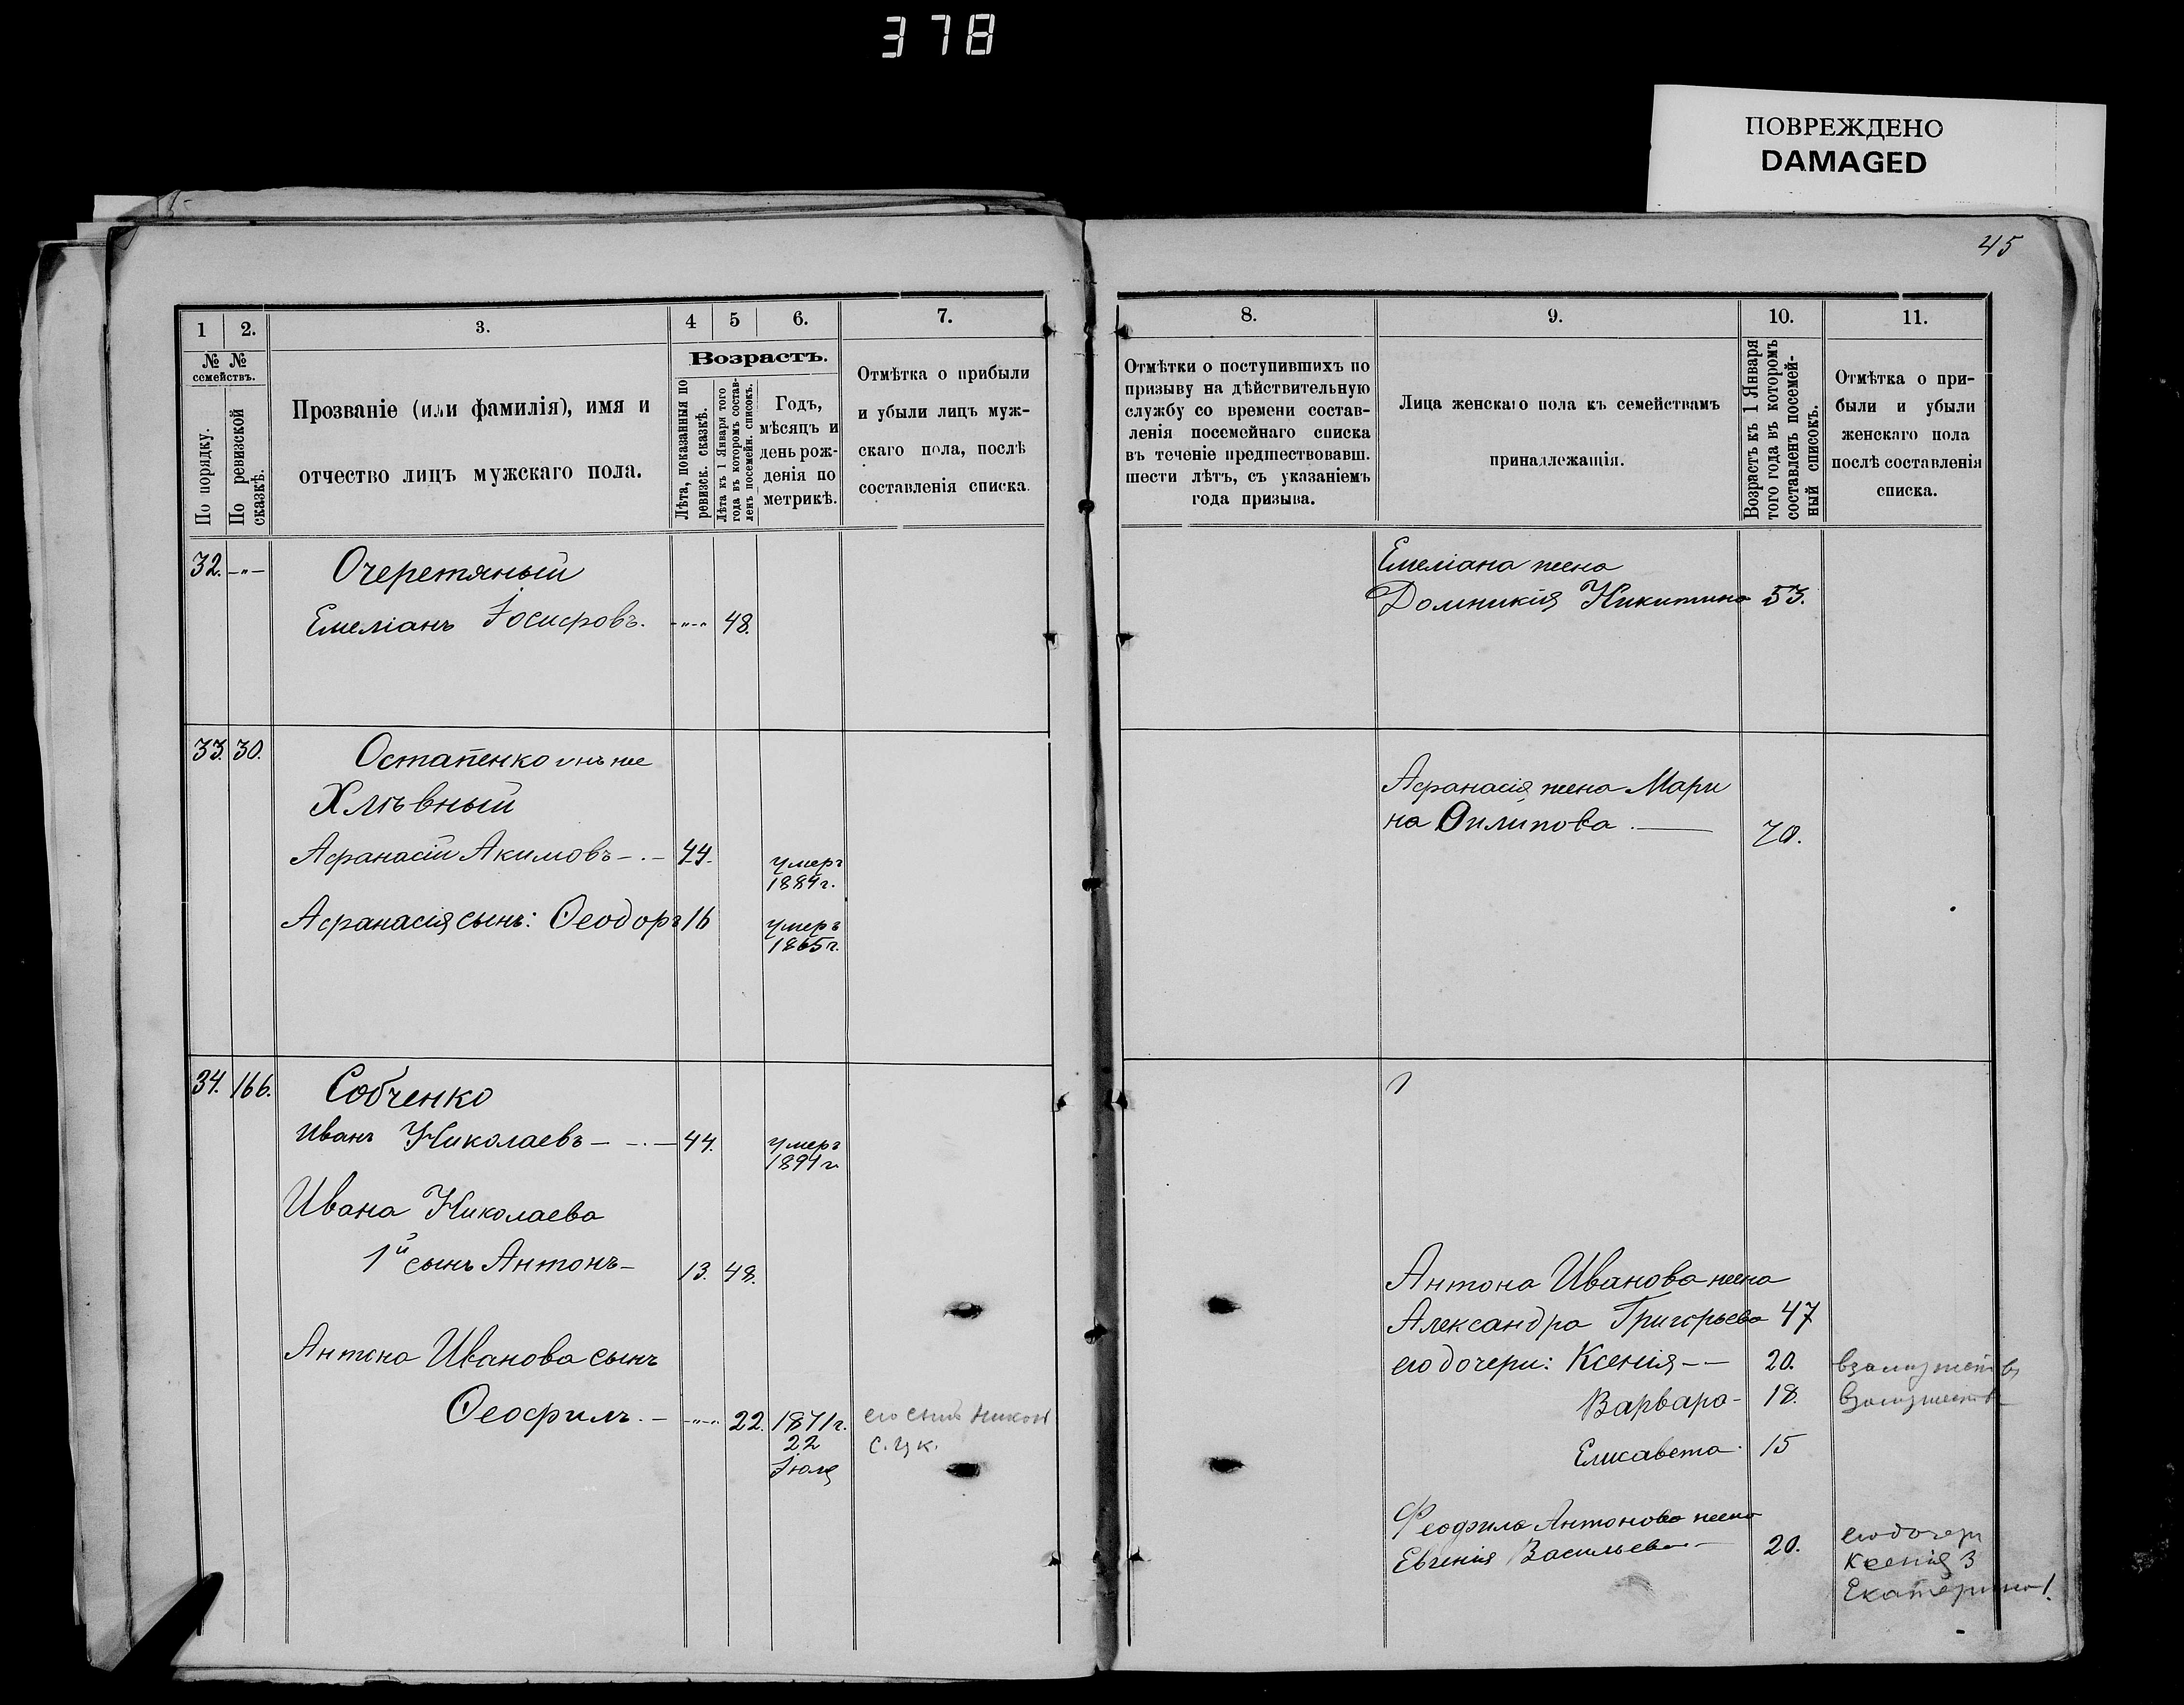 378
ПОВРЕЖДЕНО
DAMAGED
45
1
2.
3.
4
5
6.
7.
№ №
семействъ.
По порядку.
По ревизской
сказкѣ.
Прозваніе (или фамилія), имя и
отчество лицъ мужскаго пола.
Возрастъ.
Лѣта, показанныя по
ревизск. сказкѣ.
Лѣта къ 1 Января того
года въ которомъ состав-
ленъ посемейн. списокъ.
Годъ,
мѣсяцъ и
день рож-
денія по
метрикѣ.
Отмѣтка о прибыли
и убыли лицъ муж-
скаго пола, послѣ
составленія списка.
32. -"- Очеретяный
Емеліанъ Іосифовъ. -"-" 48.
33. 30. Остапенко онъ же
Хлѣвный
Афанасій Акимовъ -.- 44. умеръ
1884 г.
Афанасія сынъ: Ѳеодоръ 16 умеръ
1865 г.
34. 166. Собченко
Иванъ Николаевъ - -.- 44. умеръ
1891 г
Ивана Николаева
1й сынъ Антонъ - 13. 48.
Антона Иванова сынъ
Ѳеофилъ. - -"-" 22. 1871 г. его сынъ Никон
22 с. г. к.
Іюля
8.
9.
10.
11.
Отмѣтки о поступившихъ по
призыву на дѣйствительную
службу со времени состав-
ленія посемейнаго списка
въ теченіе предшествовавш.
шести лѣтъ, съ указаніемъ
года призыва.
Лица женскаго пола къ семействамъ
принадлежащія.
Возрастъ къ 1 Января
того года въ которомъ
составленъ посемей-
ный списокъ.
Отмѣтка о при-
были и убыли
женскаго пола
послѣ составленія
списка.
Емеліана жена
Домникія Никитина 53.
Афанасія жена Мари
на Ѳилипова. — 70.
Антона Иванова жена
Александра Григорьева 47
его дочери: Ксенія - - 20. взамужеств
Варвара - 18. взамужеств
Елисавета. 15
Феофила Антонова жена
Евгенія Васильева - 20.
его дочери
Ксенія 3
Екатерина 1.